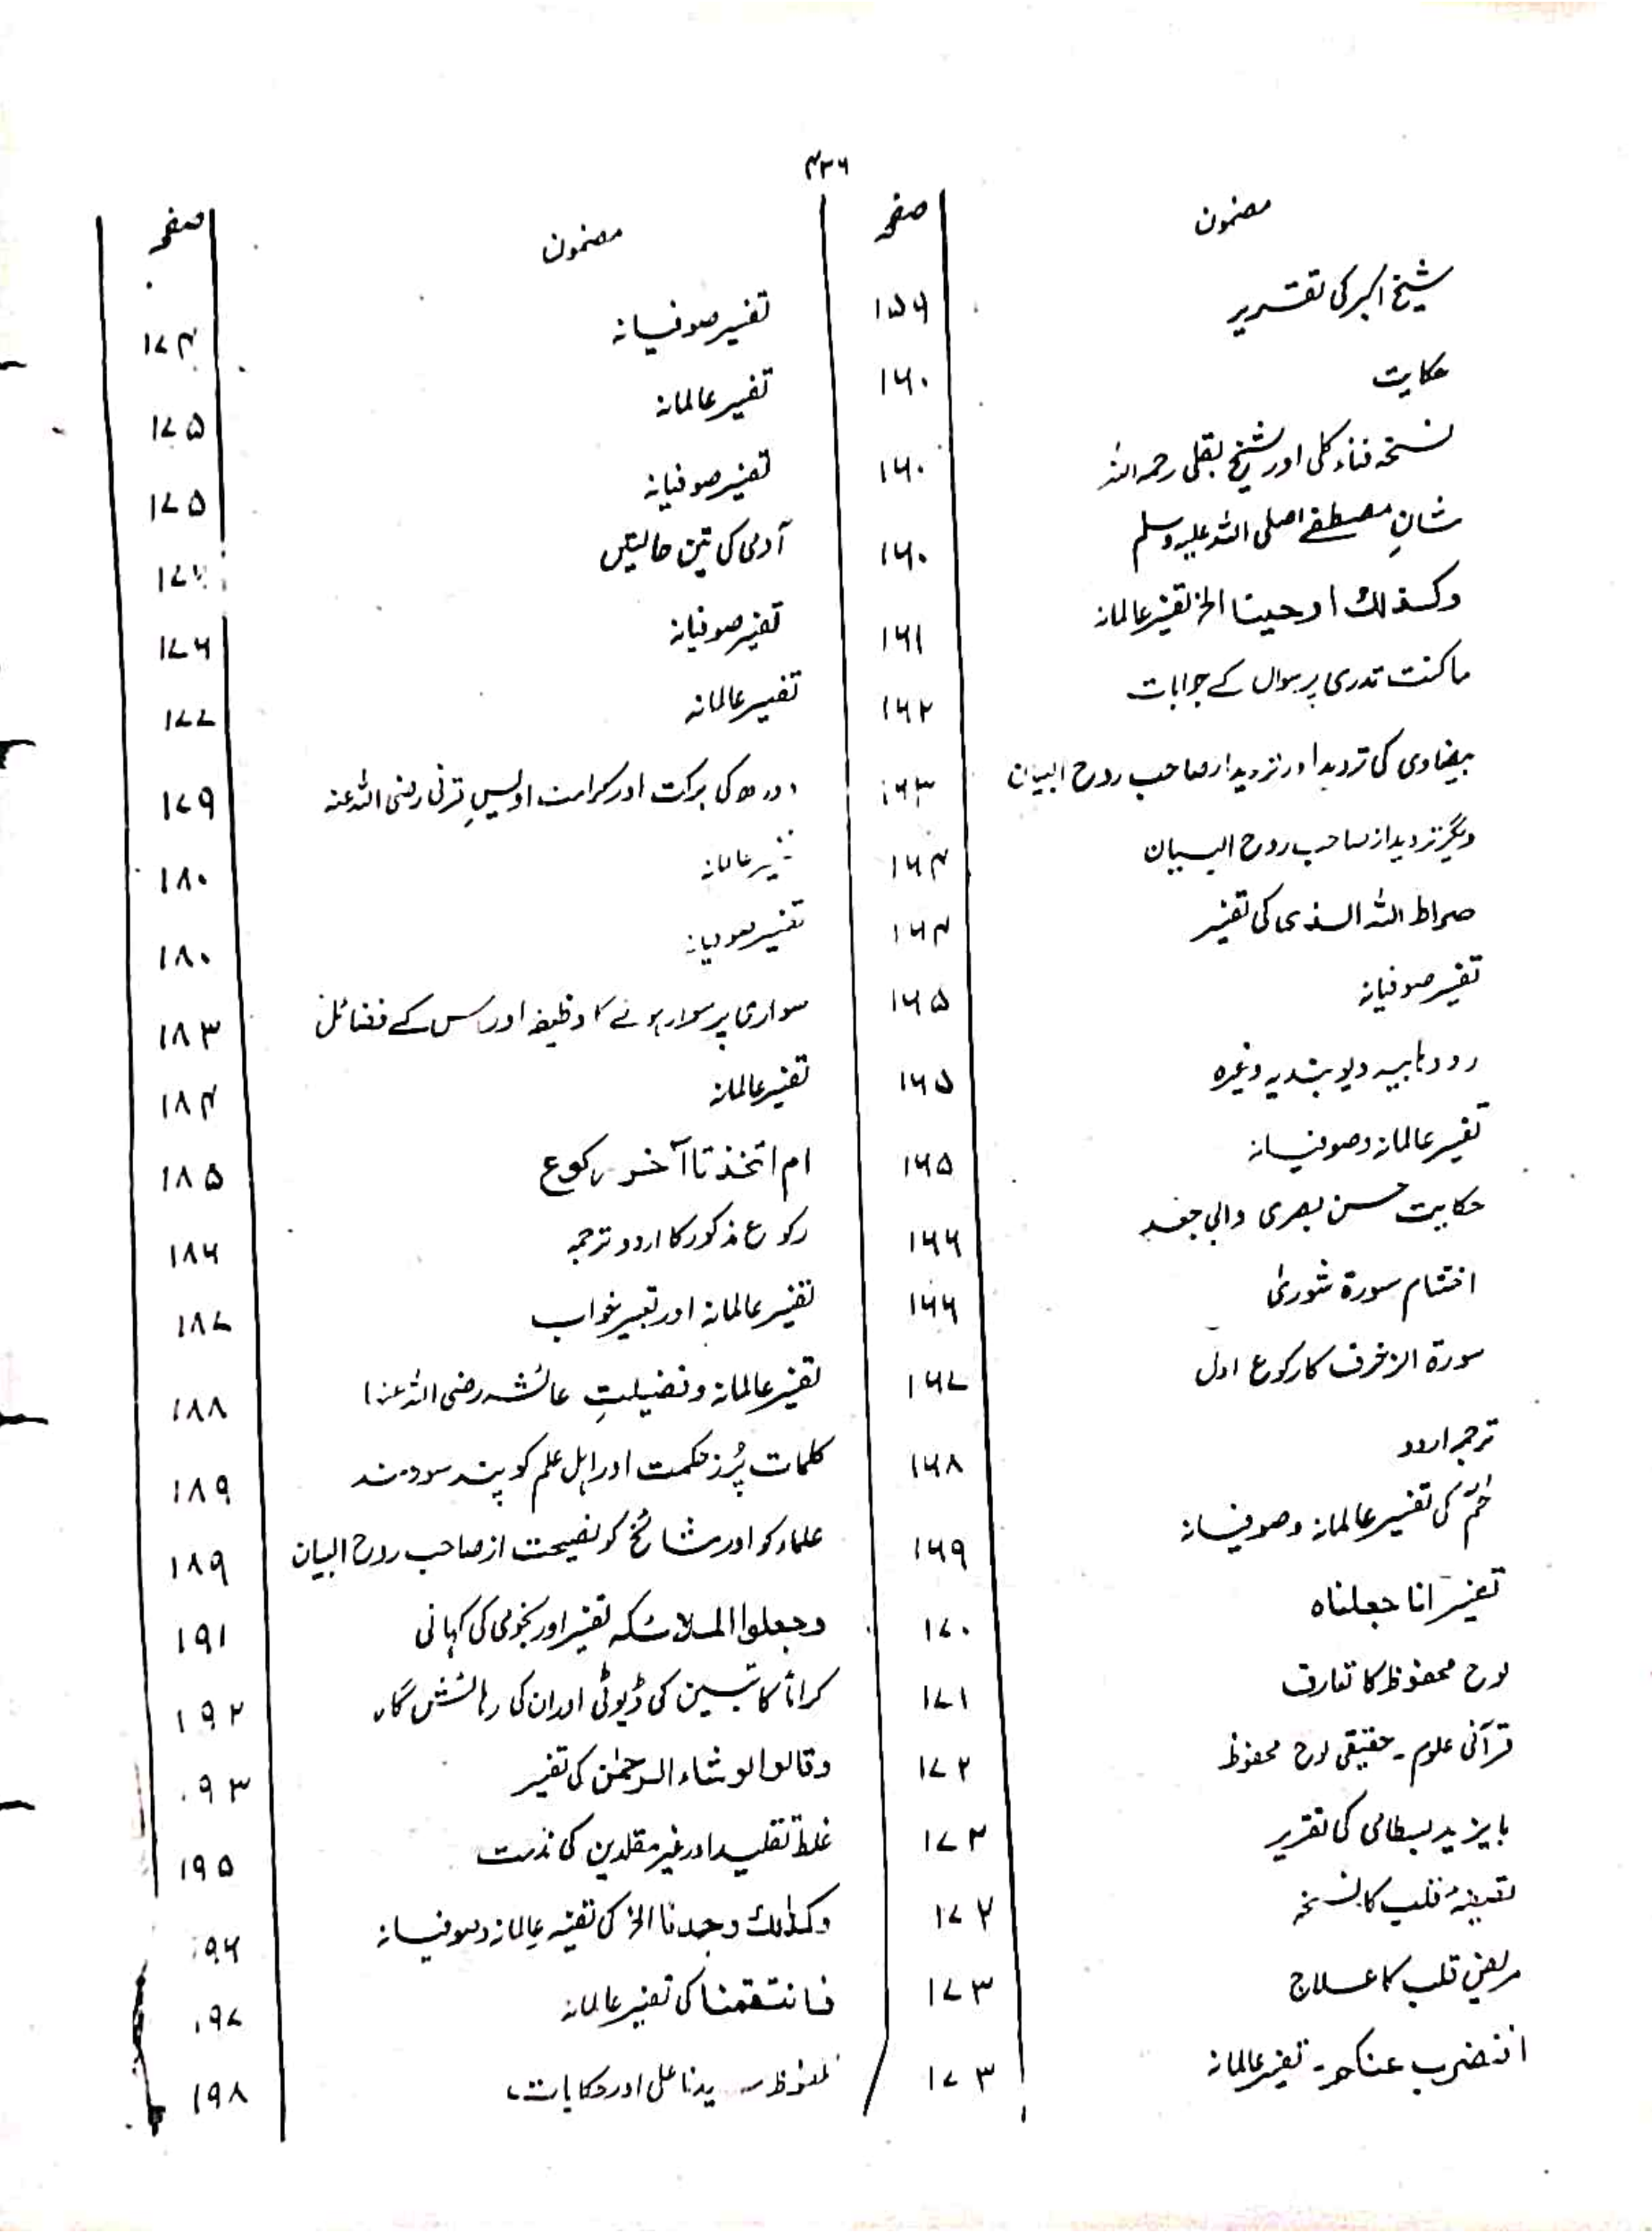 ۴۳۶
مضمون صفحہ
شیخ اکبر کی تقریر ۱۵۹
حکایت ۱۶۰
نسخہ فناء کلی اور شیخ بقلی رحمہ اللہ ۱۶۰
شانِ مصطفےٰ صلی اللہ علیہ وسلم ۱۶۰
وکذلك اوحینا الخ تفسیر عالمانہ ۱۶۱
ماکنت تدری پر سوال کے جوابات ۱۶۲
بیضاوی کی تردید اور تردید از صاحب روح البیان ۱۶۳
دیگر تردید از صاحب روح البیان ۱۶۴
صراط اللہ الذی کی تفسیر ۱۶۴
تفسیر صوفیانہ ۱۶۵
رد وہابیہ دیوبندیہ وغیرہ ۱۶۵
تفسیر عالمانہ وصوفیانہ ۱۶۵
حکایت حسن بصری و ابی جعفر ۱۶۶
اختتام سورۃ شوریٰ ۱۶۶
سورۃ الزخرف کا رکوع اول ۱۶۷
ترجمہ اردو ۱۶۸
حٰمٓ کی تفسیر عالمانہ وصوفیانہ ۱۶۹
تفسیر انا جعلناہ ۱۷۰
لوح محفوظ کا تعارف ۱۷۱
قرآنی علوم ۔ حقیقی لوح محفوظ ۱۷۲
بایزید بسطامی کی تقریر ۱۷۲
تصفیۂ قلب کا نسخہ ۱۷۲
مریض قلب کا علاج ۱۷۳
افنضرب عنکم ۔ تفسیر عالمانہ ۱۷۳
مضمون صفحہ
تفسیر صوفیانہ ۱۷۴
تفسیر عالمانہ ۱۷۵
تفسیر صوفیانہ ۱۷۵
آدمی کی تین حالتیں
تفسیر صوفیانہ ۱۷۶
تفسیر عالمانہ ۱۷۷
درود کی برکت اور کرامت اویسِ قرنی رضی اللہ عنہ ۱۷۹
تفسیر عالمانہ ۱۸۰
تفسیر صوفیانہ ۱۸۰
سواری پر سوار ہونے کا وظیفہ اور اس کے فضائل ۱۸۳
تفسیر عالمانہ ۱۸۴
ام اتخذ تا آخر رکوع ۱۸۵
رکوع مذکور کا اردو ترجمہ ۱۸۶
تفسیر عالمانہ اور تعبیر خواب ۱۸۷
تفسیر عالمانہ و فضیلتِ عائشہ رضی اللہ عنہا ۱۸۸
کلمات پُر از حکمت اور اہل علم کو پند سودمند ۱۸۹
علماء کو اور مشائخ کو نصیحت از صاحب روح البیان ۱۸۹
وجعلوا الملائکہ تفسیر اور نجومی کی کہانی ۱۹۱
کراماً کاتبین کی ڈیوٹی اور ان کی رہائش گاہ ۱۹۲
وقالوا لو شاء الرحمٰن کی تفسیر ۱۹۳
غلط تقلید اور غیر مقلدین کی مذمت ۱۹۵
وکذلك وجدنا الخ کی تفسیر عالمانہ وصوفیانہ ۱۹۶
فانتقمنا کی تفسیر عالمانہ ۱۹۷
ملفوظ سیدنا علی اور حکایات ۱۹۸